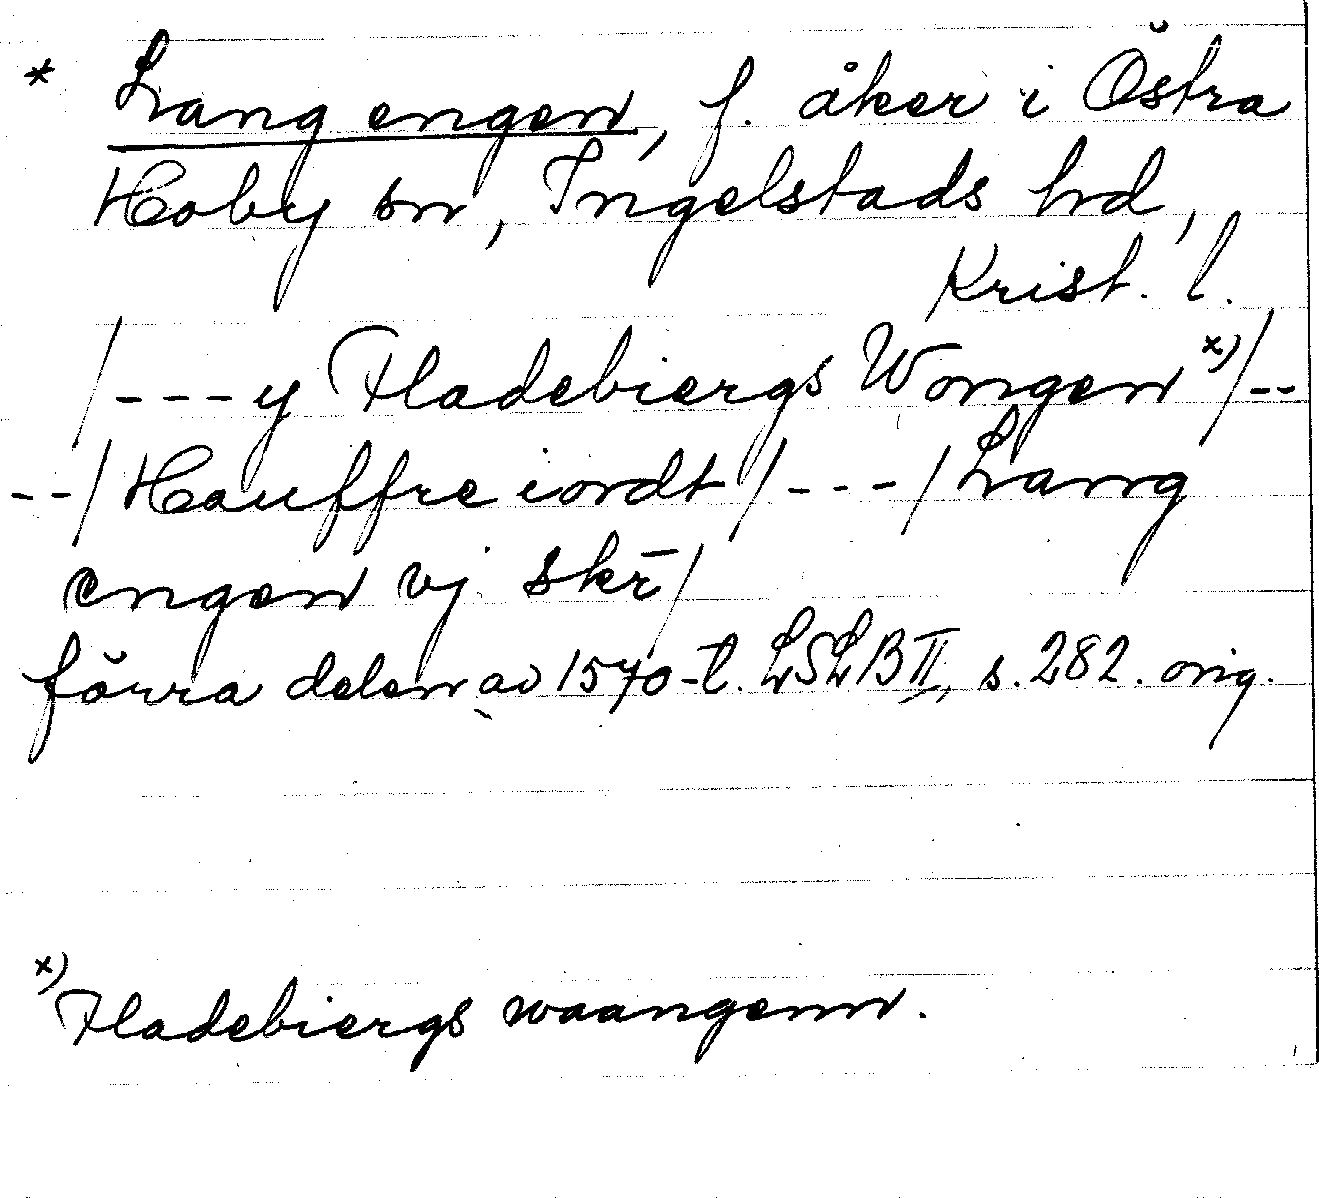 * Lang engen, f. åker i Östra
Hoby sn, Ingelstads hd,
Krist. l.
/---y Fladebiergs Wongen x)/--
--/Hauffre iordt/---/Lang
engen vj skr̄/
förra delen av 1570-t. LSLB II, s. 282. orig.
x) Fladebiergs waangenn.